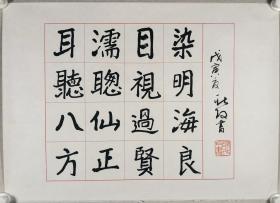 耳濡目染
聽聰視明
八仙過海
方正賢良
戊寅夏
書